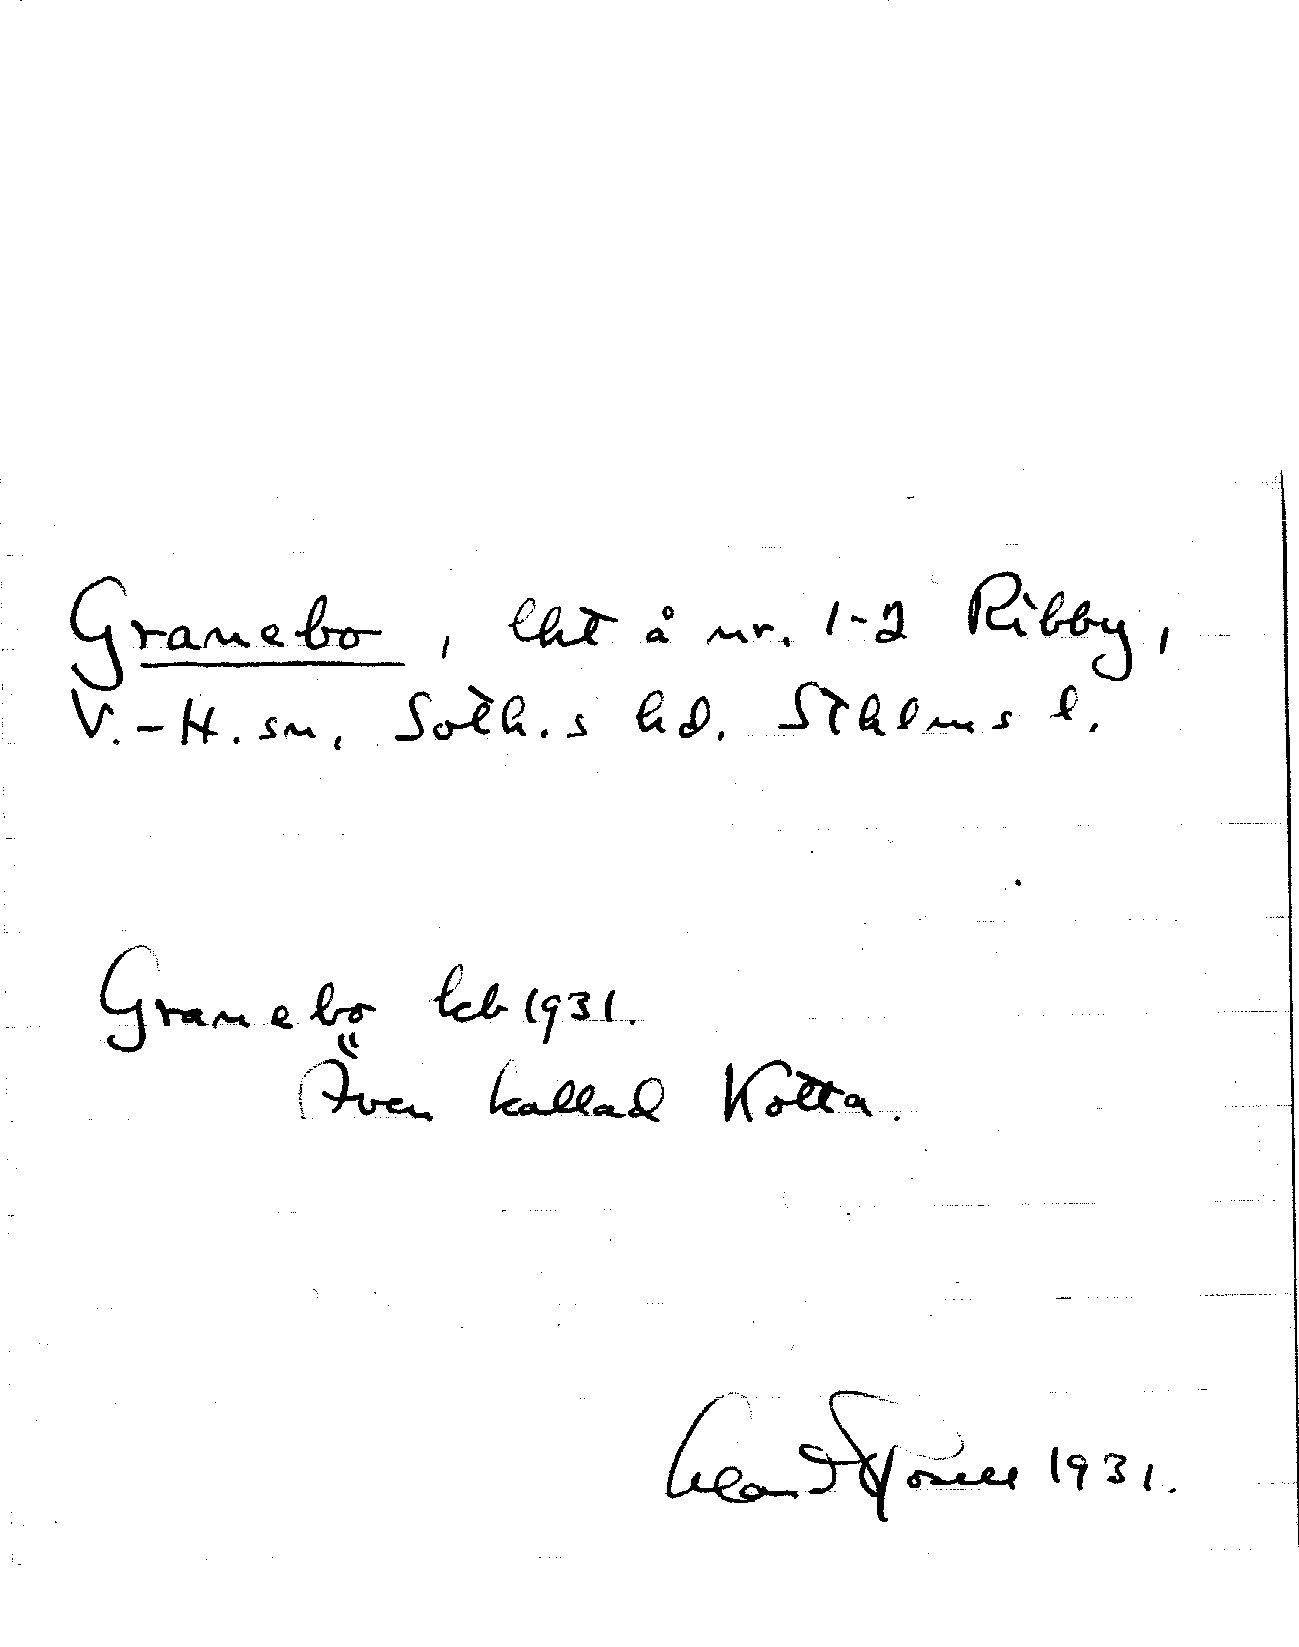 Granebo, lht å nr. 1-2 Ribby,
V.-H. sn, Soth.s hd. Sthlms l.
Granebo kb 1931.
Även kallad Kotta.
1931.